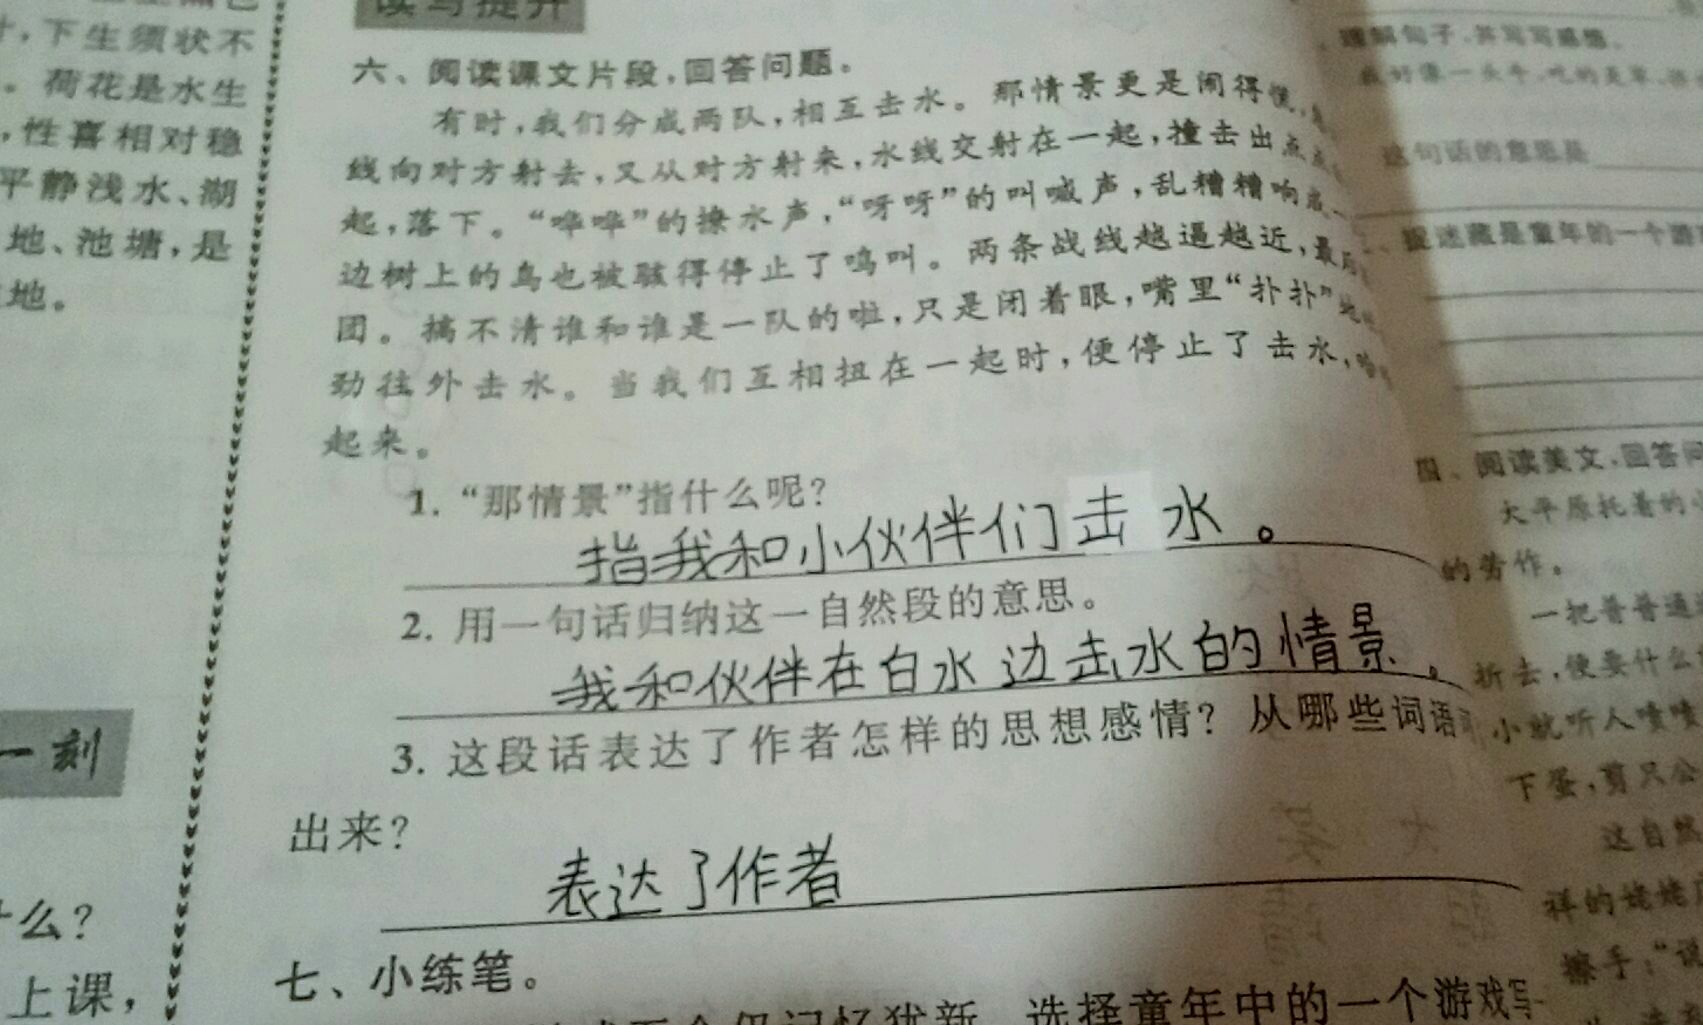 读写提升
下生须状不
。荷花是水生
，性喜相对稳
平静浅水、湖
地、池塘，是
地。
一刻
什么？
上课，
六、阅读课文片段，回答问题。
有时，我们分成两队，相互击水。那情景更是闹得慌，
线向对方射去，又从对方射来，水线交射在一起，撞击出点点
起，落下。“哗哗”的撩水声，“呀呀”的叫喊声，乱糟糟响成一
边树上的鸟也被骇得停止了鸣叫。两条战线越逼越近，最后
团。搞不清谁和谁是一队的啦，只是闭着眼，嘴里“扑扑”地
劲往外击水。当我们互相扭在一起时，便停止了击水，哈
起来。
1. “那情景”指什么呢？
指我和小伙伴们击水。
2. 用一句话归纳这一自然段的意思。
我和伙伴在白水边击水的情景。
3. 这段话表达了作者怎样的思想感情？从哪些词语
出来？
表达了作者
七、小练笔。
仍记忆犹新，选择童年中的一个游戏写
理解句子，并写写感想。
我好像一头牛，吃的是草，
这句话的意思是
捉迷藏是童年的一个游
四、阅读美文，回答问
大平原托着的
的劳作。
一把普普通
折去，便要什么
小就听人啧啧
下蛋，剪只公
这自然
祥的姥姥
擦手：“说